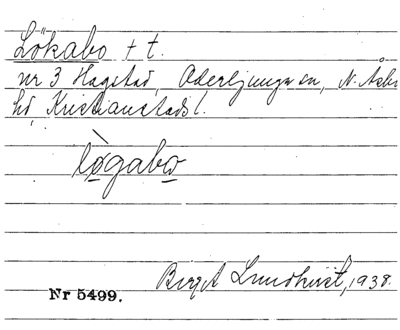 Lökabo + t.
nr 3 Hagstad, Oderljunga sn, N. Åsbo
hd, Kristianstads l.
lògabo
Birgit Lundqvist, 1938.
Nr 5499.